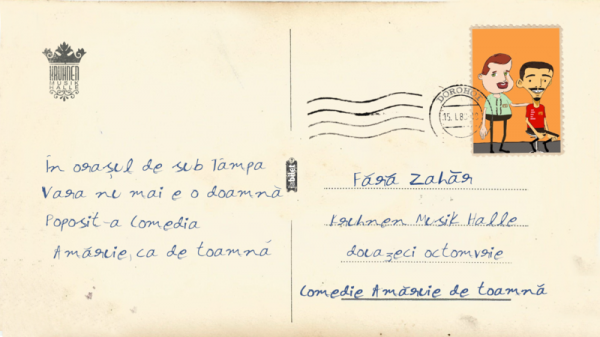 KRUHNEN
MUSIK
HALLE
DOROHOI
15. I. 8
În orașul de sub Tâmpa
Vara nu mai e o doamnă
Poposit-a Comedia
Amăruie, ca de toamnă
bilet
Fără Zahăr
Kruhnen Musik Halle
douazeci octomvrie
Comedie Amăruie de toamnă